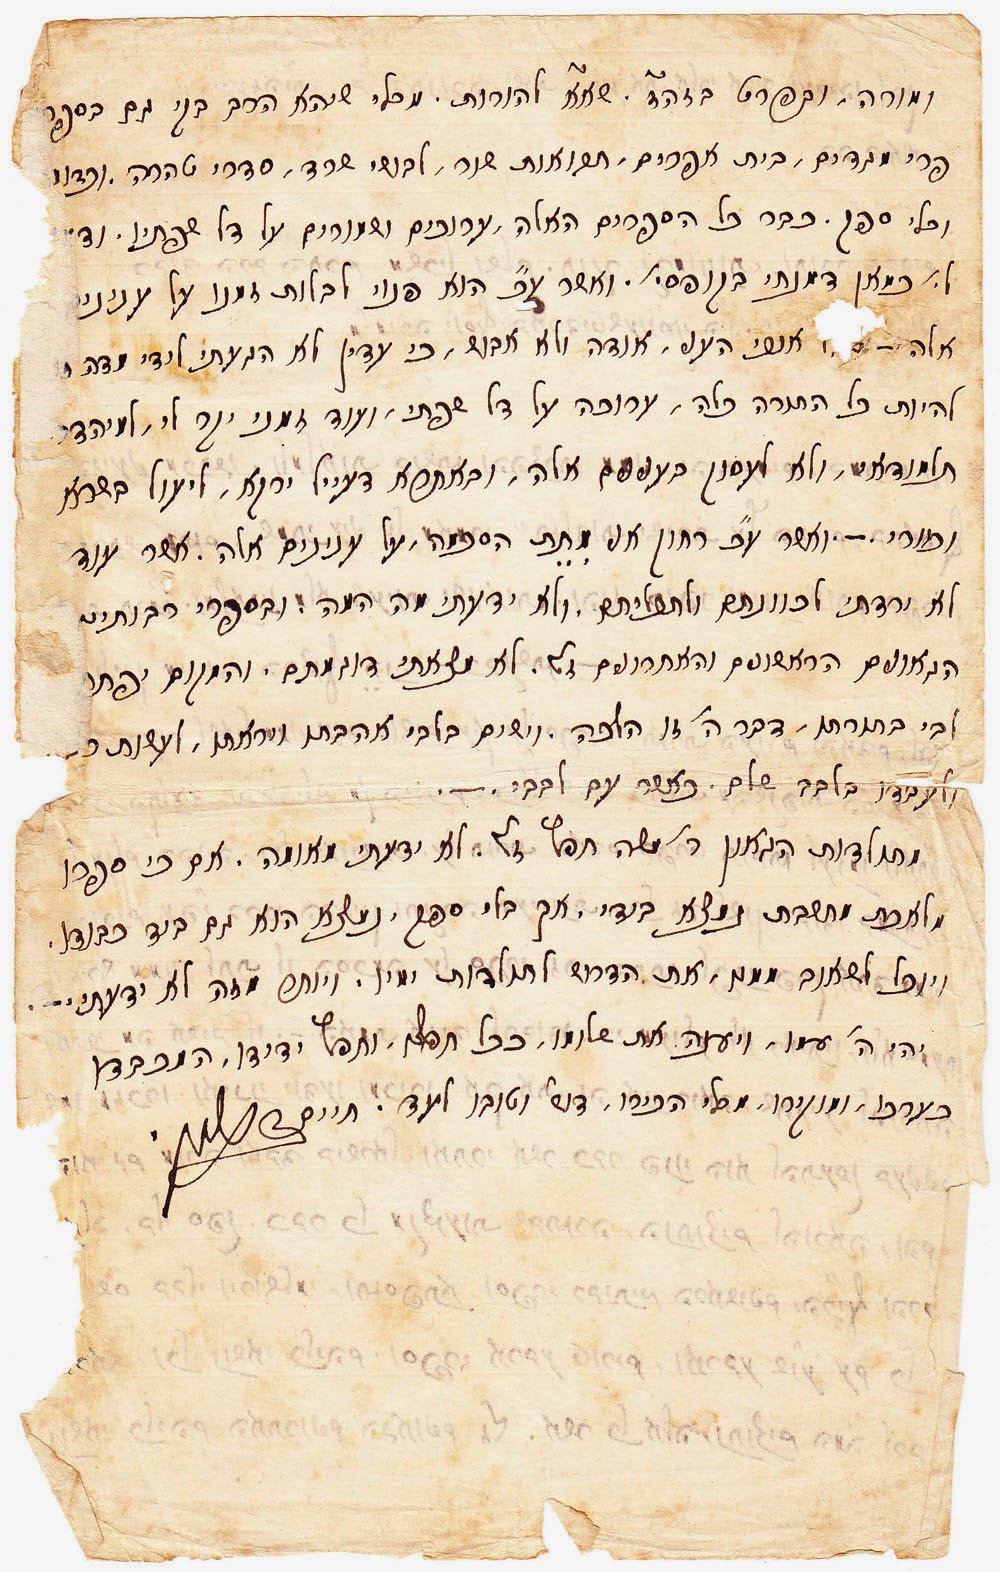 ומורה, ובפרט בזה״ז. שא״א להורות. מבלי שיהא הרב בקי גם בספרי
פרי מגדים, בית אפרים, תבואות שור, לבושי שרד, סדרי טהרה.
ובלי ספק. כבר כל הספרים האלה, ערוכים ושמורים על דל שפתיו.
לי כמאן דמנחי בקופסי׳. ואשר ע״כ הוא פנוי לבלות זמנו על עניני
אלה אנשי הענף, אודה ולא אבוש, כי עדיין לא הגעתי לידי מדה
להיות כל התורה כלה, ערוכה על דל שפתי, ועוד זמני יקר לי,
תלמודאי, ולא לעסוק בענפים אלה, ובאתרא דעייל ירקא, ליעול בשרא
וכוורי. — ואשר ע״כ רחוק אני מתת הסכמה, על ענינים אלה. אשר עוד
לא ירדתי לכוונתם ולתכליתם. ולא ידעתי מה המה. ובספרי רבותינו
הגאונים הראשונים והאחרונים ז״ל. לא מצאתי דוגמתם. והמקום יפתח
לבי בתורתו, דבר ה׳ זו הלכה. וישים בלבי אהבתו ויראתו, לעשות
ולעבדו בלבב שלם. כאשר עם לבבי. —.
מתולדות הגאון ר׳ משה חפץ ז״ל. לא ידעתי מאומה. אם כי ספרו
מלאכת מחשבת נמצא בידי. אך בלי ספק, נמצא הוא גם ביד כבודו.
ויוכל לשאוב ממנו, את הדרוש לתולדות ימיו. ויותר מזה לא ידעתי. —.
יהי ה׳ עמו, ויענה את שלומו, ככל חפצו, וחפץ ידידו, המכבדו
כערכו, ומוקירו, מבלי הכירו, דוש וטובו לעד. חיים